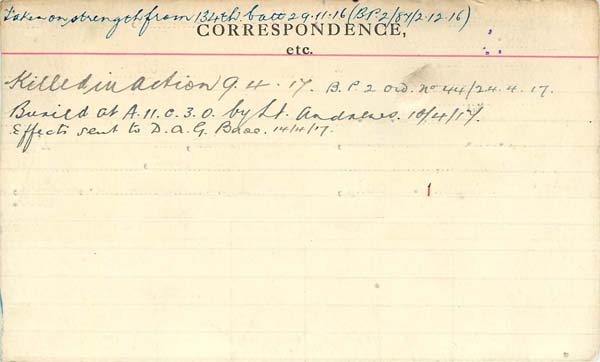 Taken on strength from 134th batt 29.11.16 (B.P.2/84/2.12.16)
CORRESPONDENCE,
etc.
Killed in action 9.4.17. B.P.2 ord. No 44/24.4.17.
Buried at A.11.c.3.0. by Lt. Andrews. 10/4/17.
Effects sent to D.A.G. Base. 14/4/17.